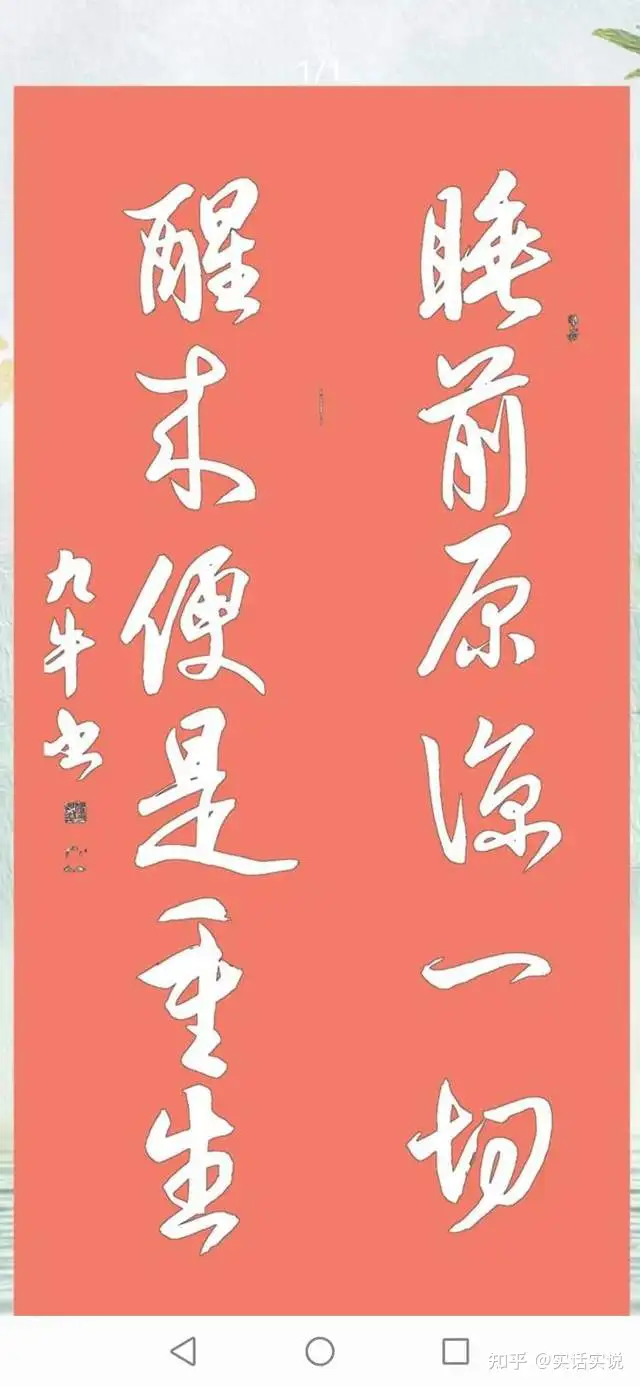 1/1
睡前原谅一切
醒来便是重生
九牛书
知乎 @实话实说